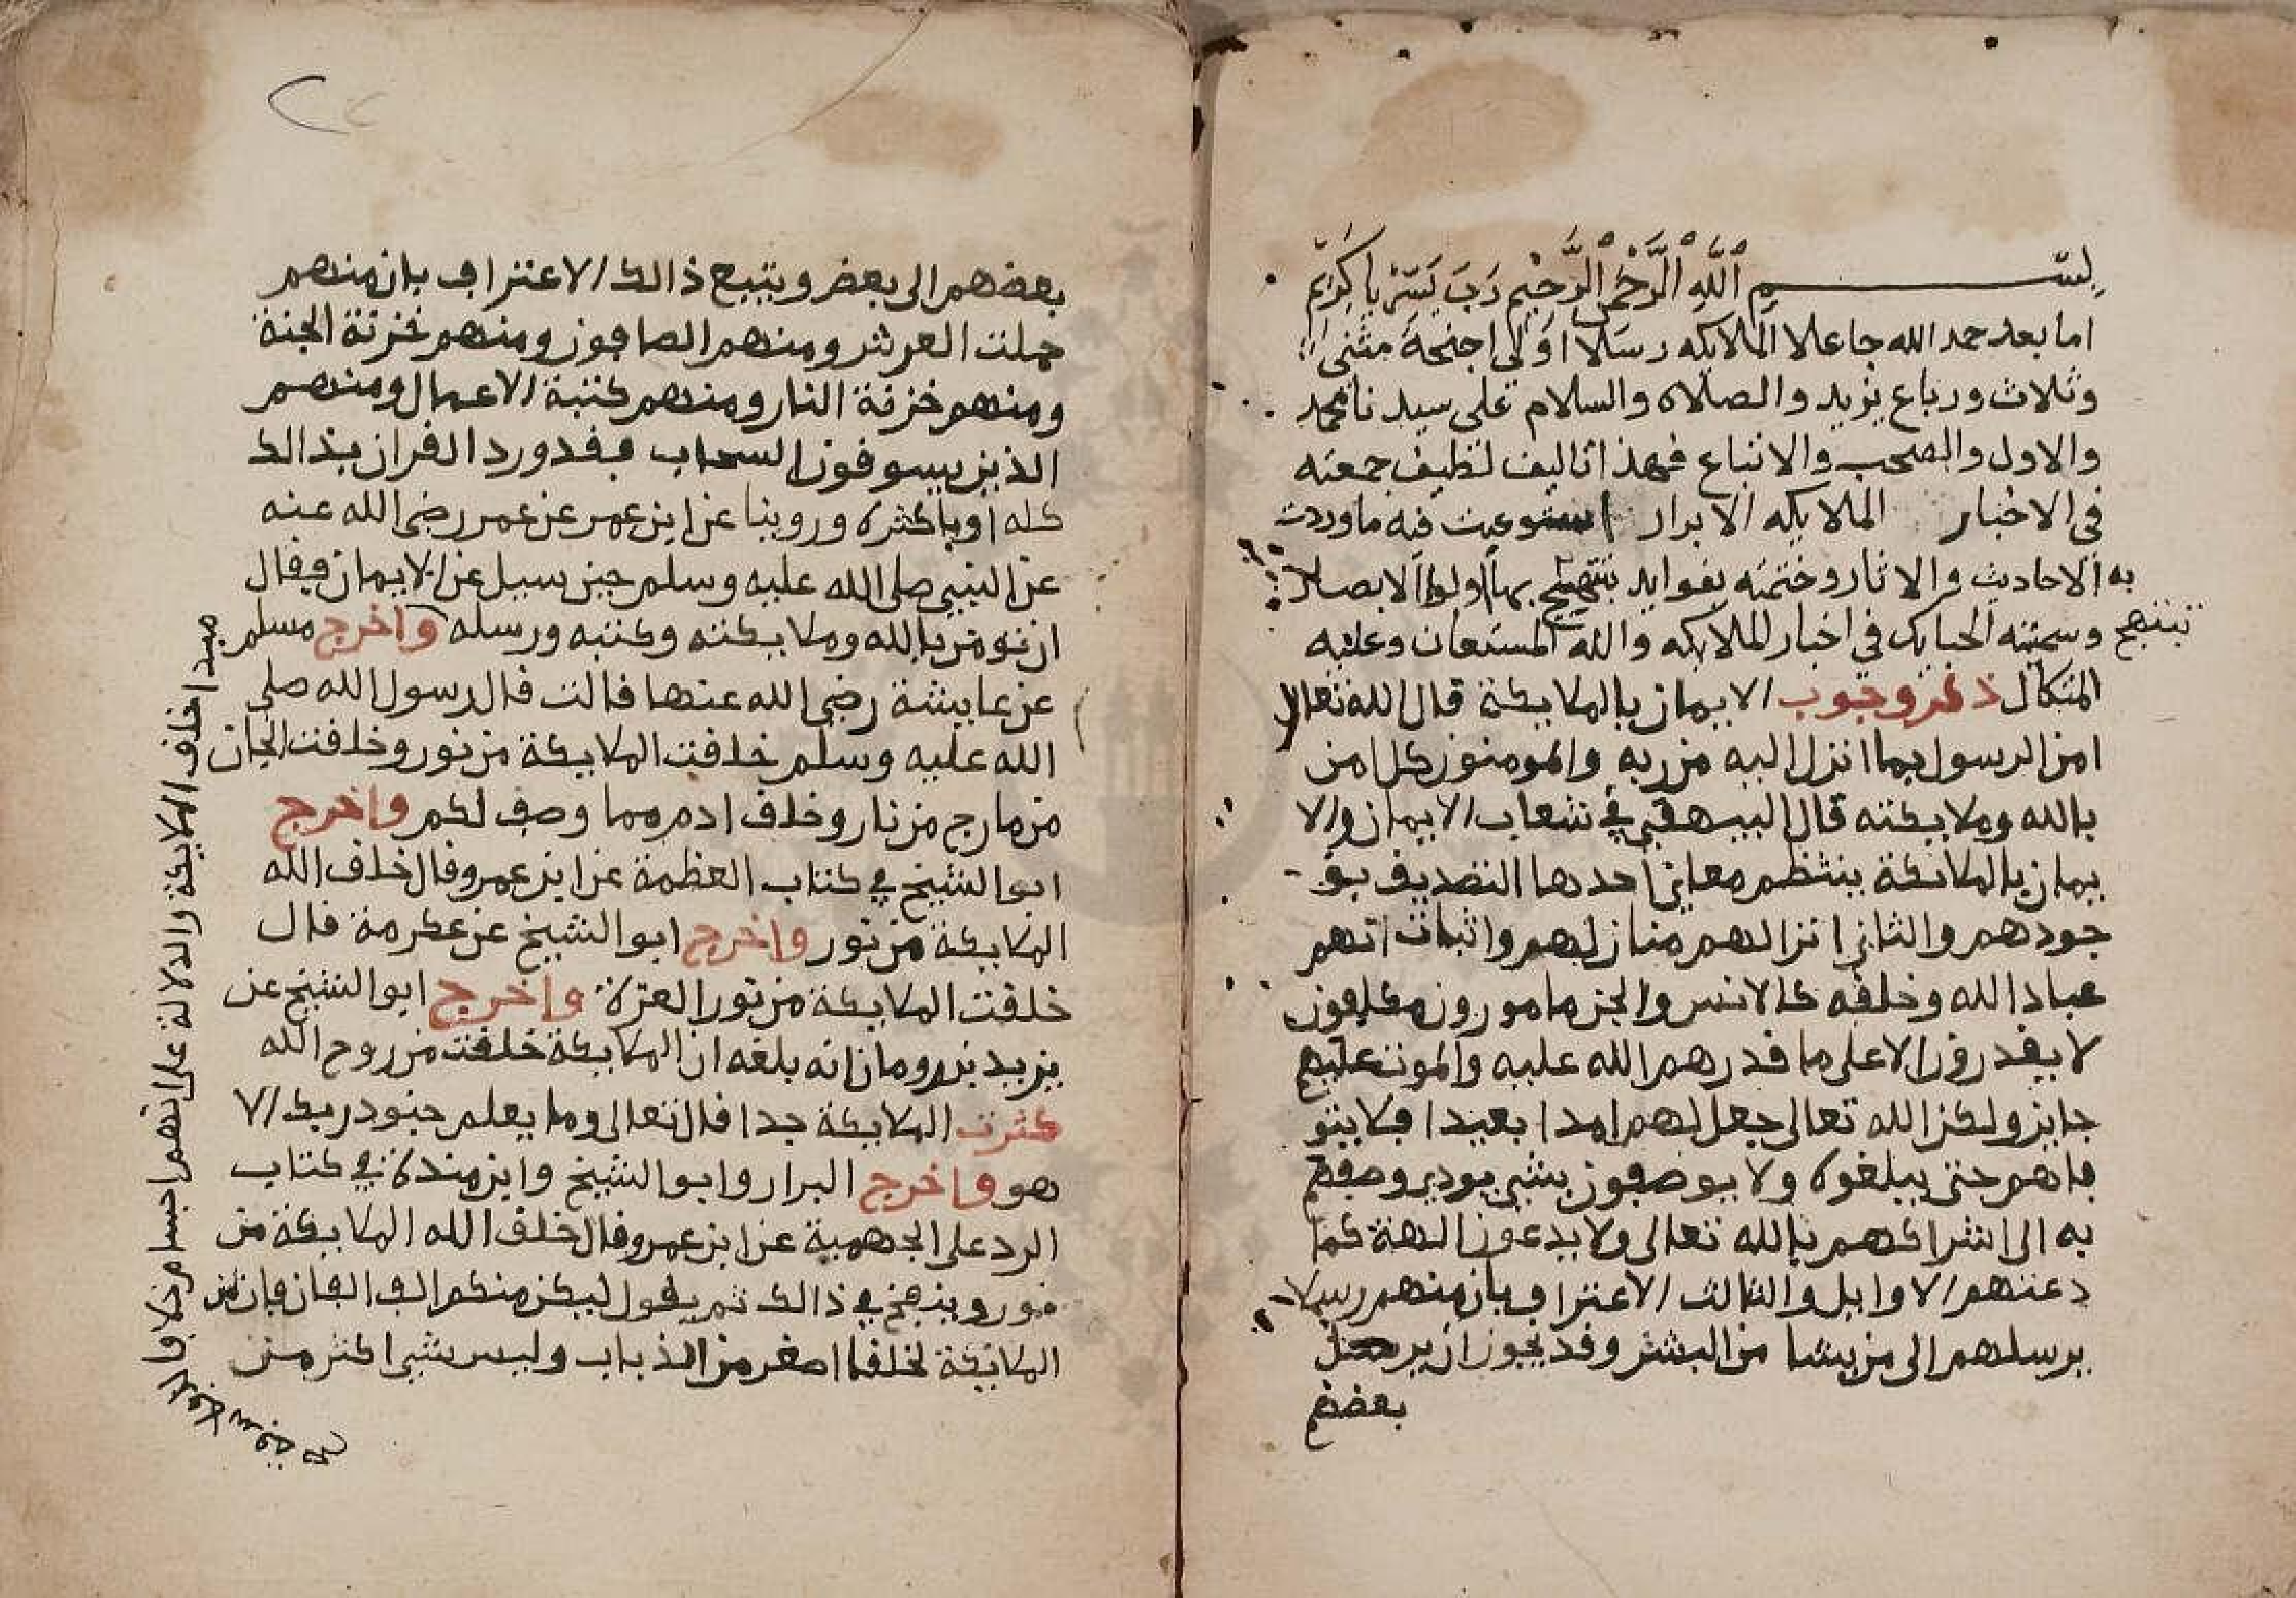 بسم الله الرحمن الرحيم رب يسر يا كريم
اما بعد حمد الله جاعلا الملايكه رسلا اولى اجنحة مثنى
وثلاث ورباع يزيد والصلاه والسلام على سيدنا محمد
والاول والصحب والاتباع فهذا تاليف لطيف جمعته
فى الاخبار الملايكه الابرار استوعبت فيه ماوردت
به الاحاديث والاثار وختمته بفوايد يبتهج بها اولوا الابصار
تبتهج
وسميته الحبايك في اخبار الملايكه والله المستعان وعليه
المتكال ذكر وجوب الايمان بالملايكة قال الله تعالا
امن الرسول بما انزل اليه من ربه والمومنون كل امن
بالله وملايكته قال البيهقي في شعاب الايمان والا
يمان بالملايكة ينتظم معاني احدها التصديق بو
جودهم والثاني انزالهم منازلهم واثبات انهم
عباد الله وخلقه كالانس والجن مامورون مكلفون
لا يقدرون الا على ما قدرهم الله عليه والموت عليهم
جايز ولكن الله تعالى جعل لهم امدا بعيدا فلا يتو
فاهم حتى يبلغوه ولا يوصفون بشي يودي وصفهم
به الى اشراكهم بالله تعالى ولا يدعون الهة كما
دعتهم الاوايل والثالث الاعتراف بان منهم رسلا
يرسلهم الى من يشا من البشر وقد يجوز ان يرسل
بعضهم
بعضهم الى بعض ويتبع ذالك الاعتراف بان منهم
حملت العرش ومنهم الصافون ومنهم خزنة الجنة
ومنهم خزنة النار ومنهم كتبة الاعمال ومنهم
الذين يسوقون السحاب فقد ورد القران بذالك
كله او باكثره وروينا عن ابن عمر عن عمر رضي الله عنه
عن النبي صلى الله عليه وسلم حين سيل عن الايمان فقال
ان تومن بالله وملايكته وكتبه ورسله واخرج مسلم
عن عايشة رضي الله عنها قالت قال رسول الله صلى
الله عليه وسلم خلقت الملايكة من نور وخلقت الجان
من مارج من نار وخلق ادم مما وصف لكم واخرج
ابوا الشيخ في كتاب العظمة عن ابن عمرو قال خلق الله
الملايكة من نور واخرج ابوا الشيخ عن عكرمة قال
خلقت الملايكة من نور العزة واخرج ابوا الشيخ عن
يزيد بن رومان انه بلغه ان الملايكة خلقت من روح الله
كثرت الملايكة جدا قال تعالى وما يعلم جنود ربك الا
هو واخرج البزار وابوا الشيخ وابن مندة في كتاب
الرد على الجهمية عن ابن عمرو قال خلق الله الملايكة من
نور وينفخ في ذالك ثم يقول ليكن منكم الف الفان فان من
الملايكة لخلقا اصغر من الذباب وليس شي اكثر من
مبدا خلق الملايكة والدلالة على انهم اجسام خلافا